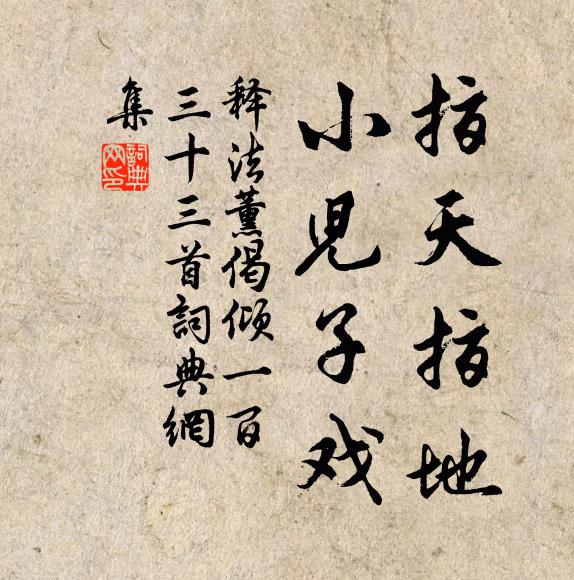 指天指地
小児子戏
释法薰偈倾一百
三十三首詞典網
集
詞典
网印